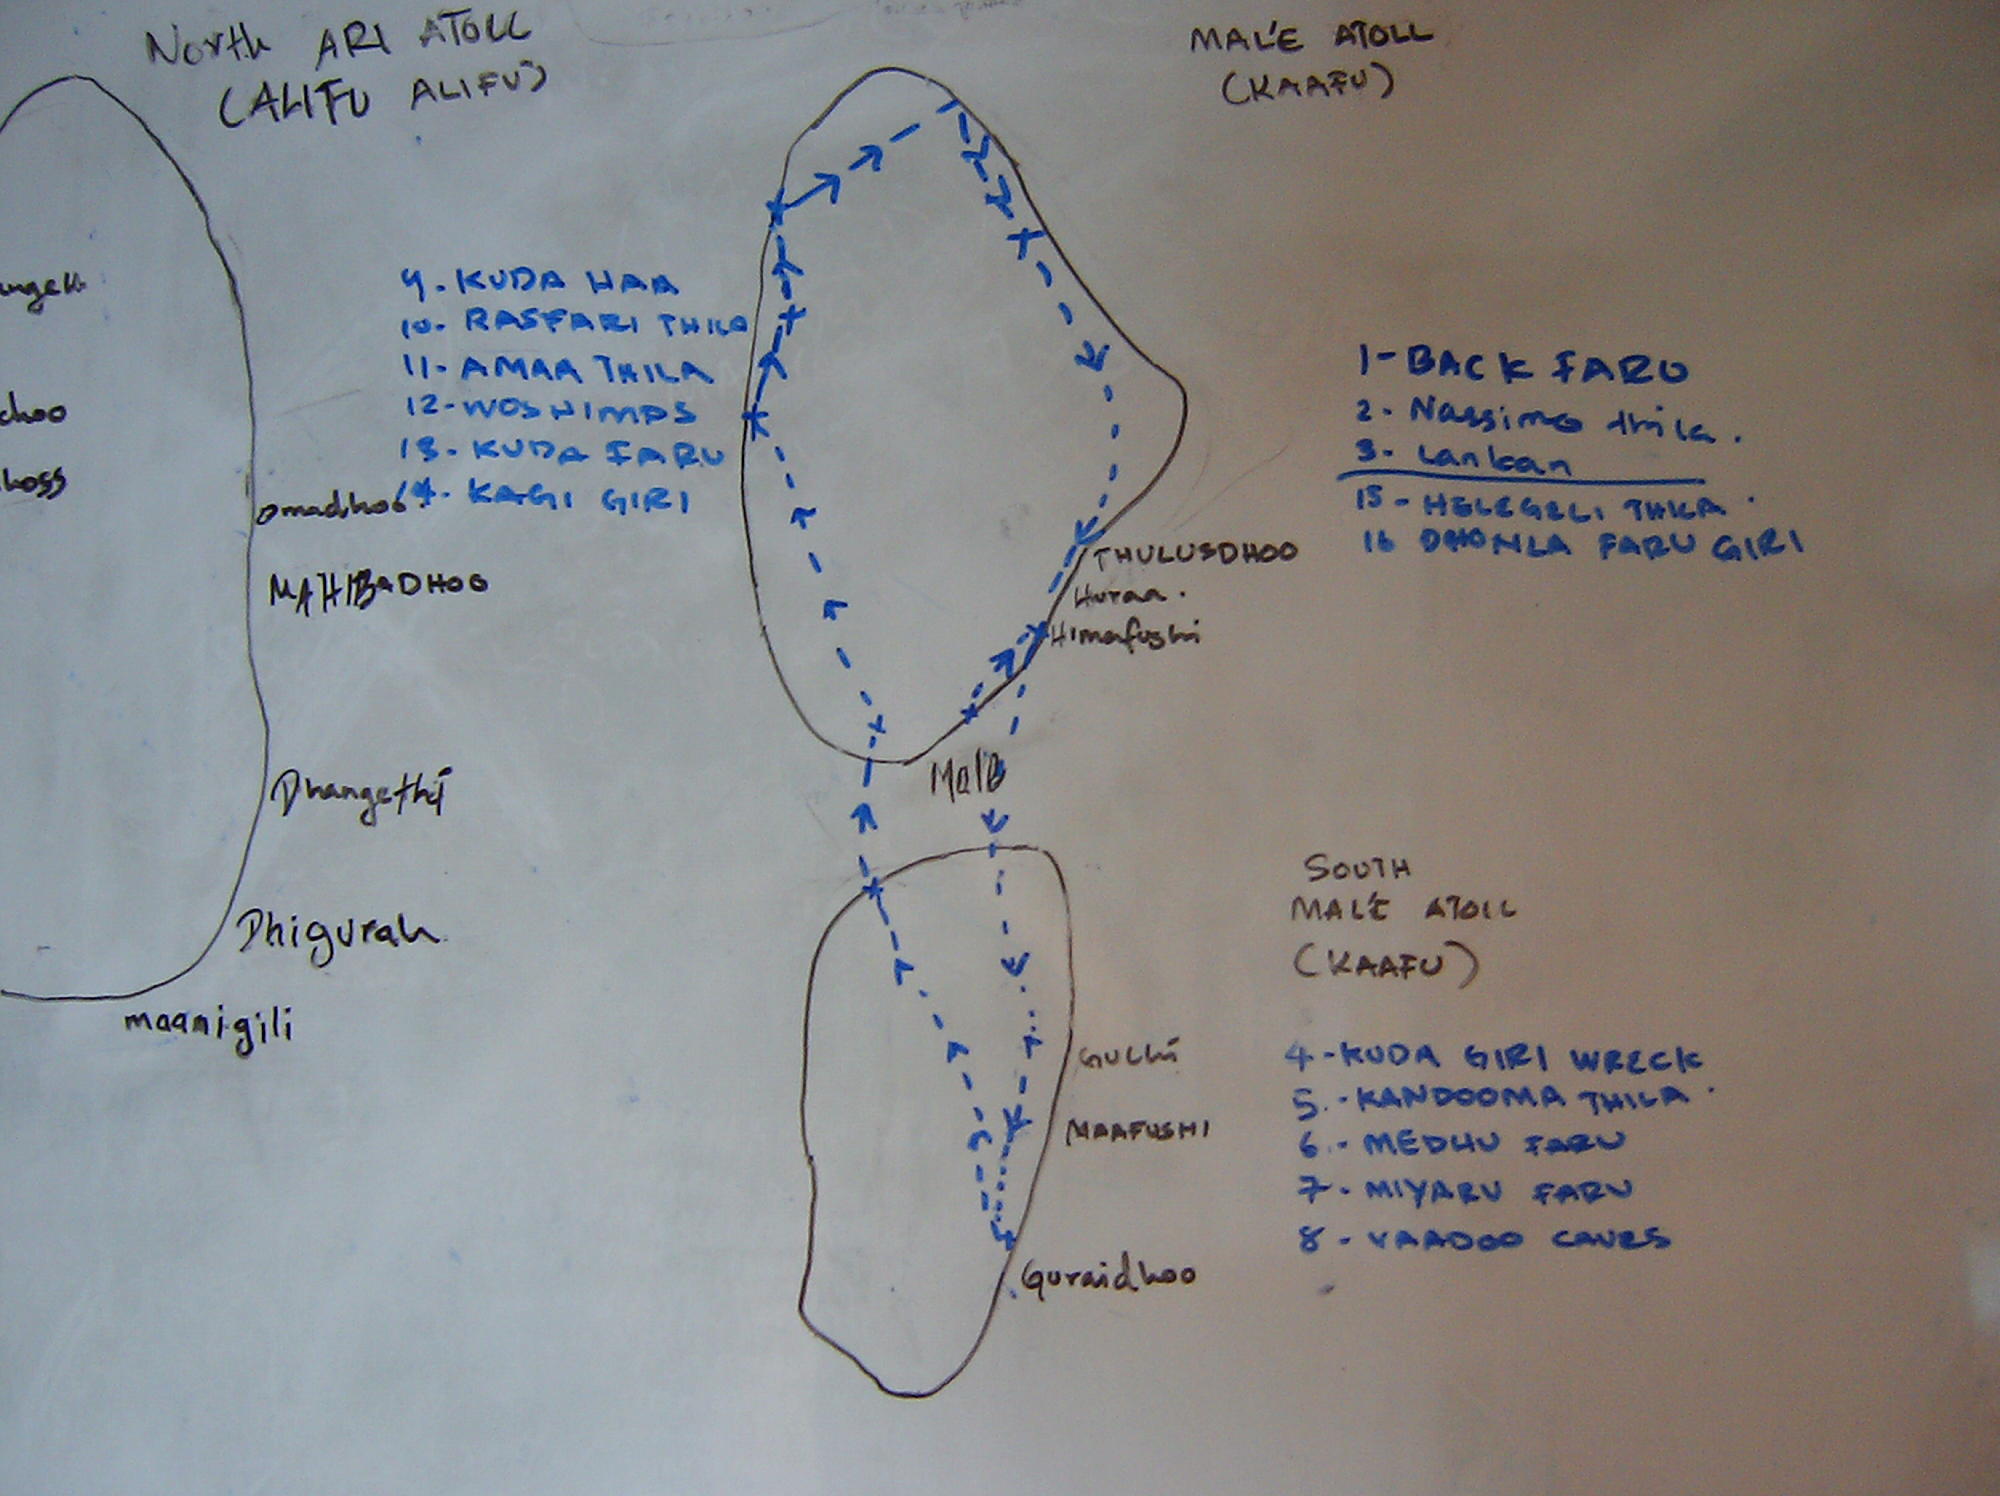 North ARI ATOLL
(ALIFU ALIFU)
MAL'E ATOLL
(KAAFU)
9. KUDA HAA
10. RASFARI THILA
11. AMAA THILA
12- WOSHIMAS
13. KUDA FARU
14. KAGI GIRI
1- BACK FARU
2. Nassimo thila.
3. Lankan
15- HELEGELI THILA.
16 DHONLA FARU GIRI
omadhoo
MAHIBADHOO
Dhangethi
Dhigurah
maamigili
THULUSDHOO
Huraa.
Himafushi
Male
SOUTH
MAL'E ATOLL
(KAAFU)
GULHi
MAAFUSHI
Guraidhoo
4- KUDA GIRI WRECK
5.- KANDOOMA THILA.
6.- MEDHU FARU
7- MIYARU FARU
8- VAADOO CAVES